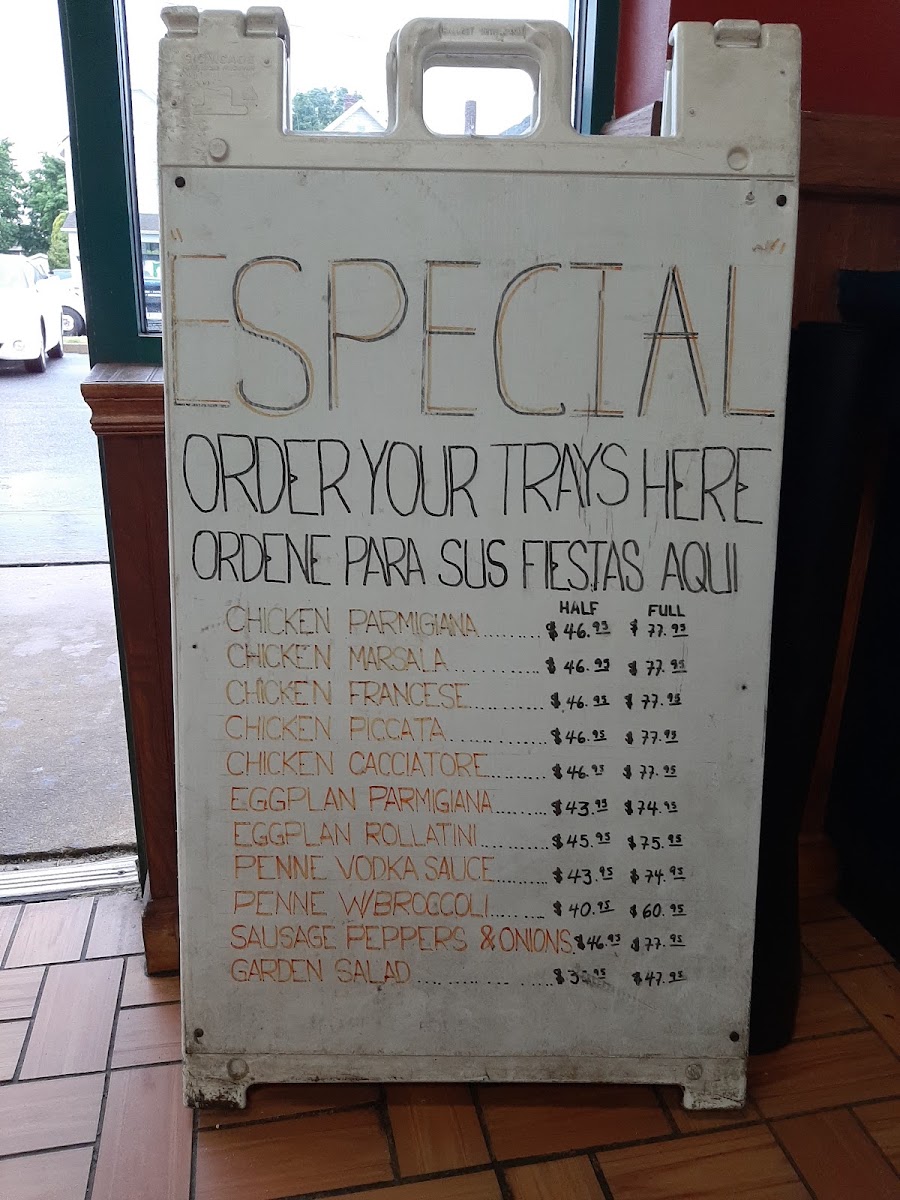 ESPECIAL
ORDER YOUR TRAYS HERE
ORDENE PARA SUS FIESTAS AQUI
HALF FULL
CHICKEN PARMIGIANA........ $46.95 $77.95
CHICKEN MARSALA............ $46.95 $77.95
CHICKEN FRANCESE........... $46.95 $77.95
CHICKEN PICCATA............. $46.95 $77.95
CHICKEN CACCIATORE........ $46.95 $77.95
EGGPLAN PARMIGIANA....... $43.95 $74.95
EGGPLAN ROLLATINI......... $45.95 $75.95
PENNE VODKA SAUCE......... $43.95 $74.95
PENNE W/BROCCOLI......... $40.95 $60.95
SAUSAGE PEPPERS & ONIONS $46.95 $77.95
GARDEN SALAD................ $47.95